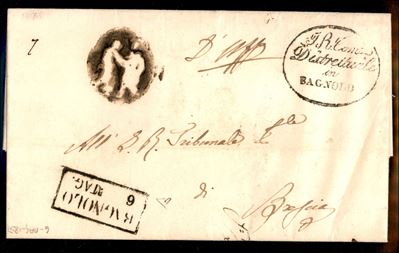 7
D'Uff
I. R. Com
Distrettuale
in
BAGNOLO
All' I. R. Tribunale
di
Brescia
BAGNOLO
6